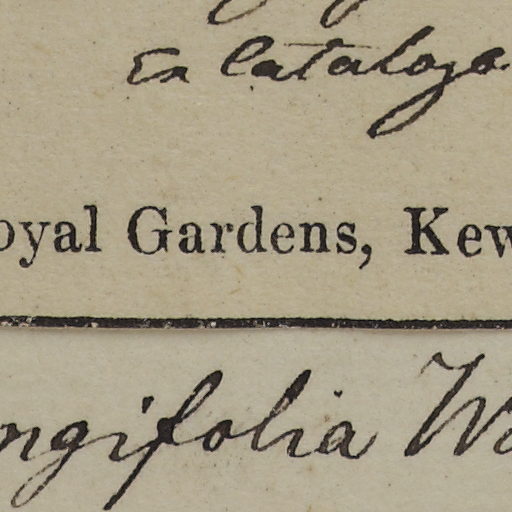 Ex Catalogo
oyal Gardens, Kew
ngifolia W